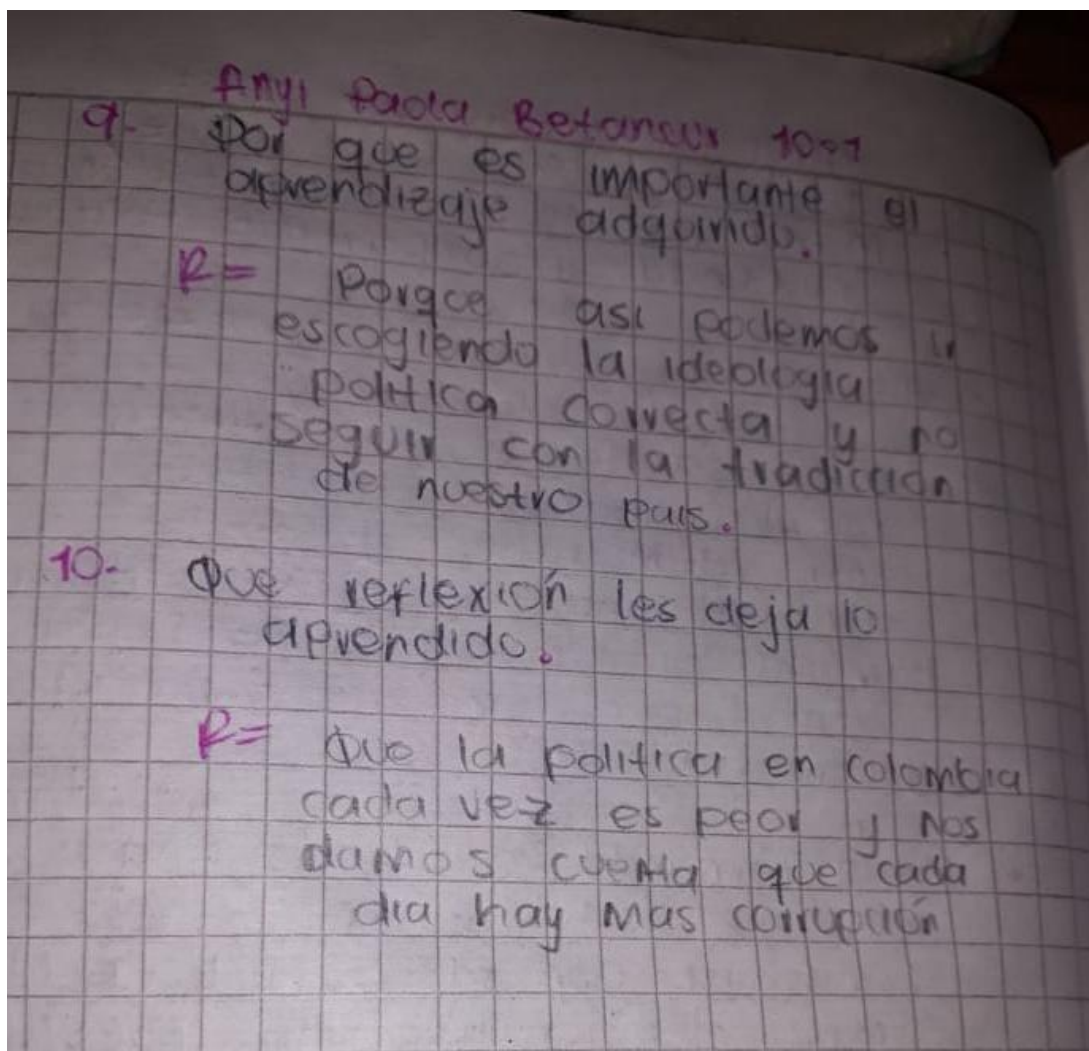 Anyi Paola Betancur 10-1
9- Por que es importante el
aprendizaje adquirido.
R= Porque asi podemos ir
escogiendo la ideologia
politica correcta y no
seguir con la tradicción
de nuestro pais.
10- Que reflexión les deja lo
aprendido.
R= Que la politica en colombia
cada vez es peor y nos
damos cuenta que cada
dia hay mas corrupción